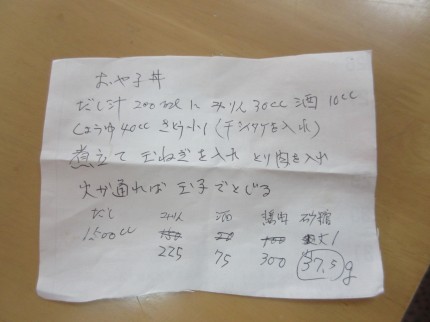 おや子丼
だし汁 200ml に みりん 30cc 酒 10cc
しょうゆ 40cc さとう小1 (干シイタケを入れ)
煮立て 玉ねぎを入れ とり肉を入れ
火が通れば 玉子でとじる
だし みりん 酒 醤油 砂糖
1500cc 150 100 大1
225 75 300 37.5g